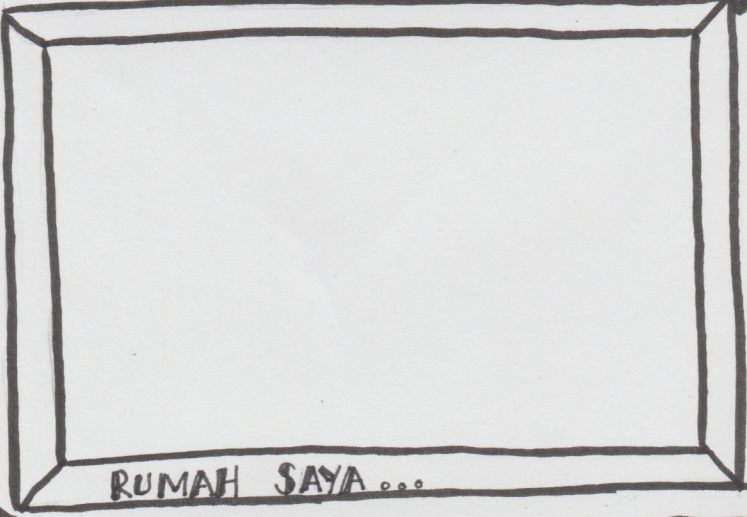 RUMAH SAYA...